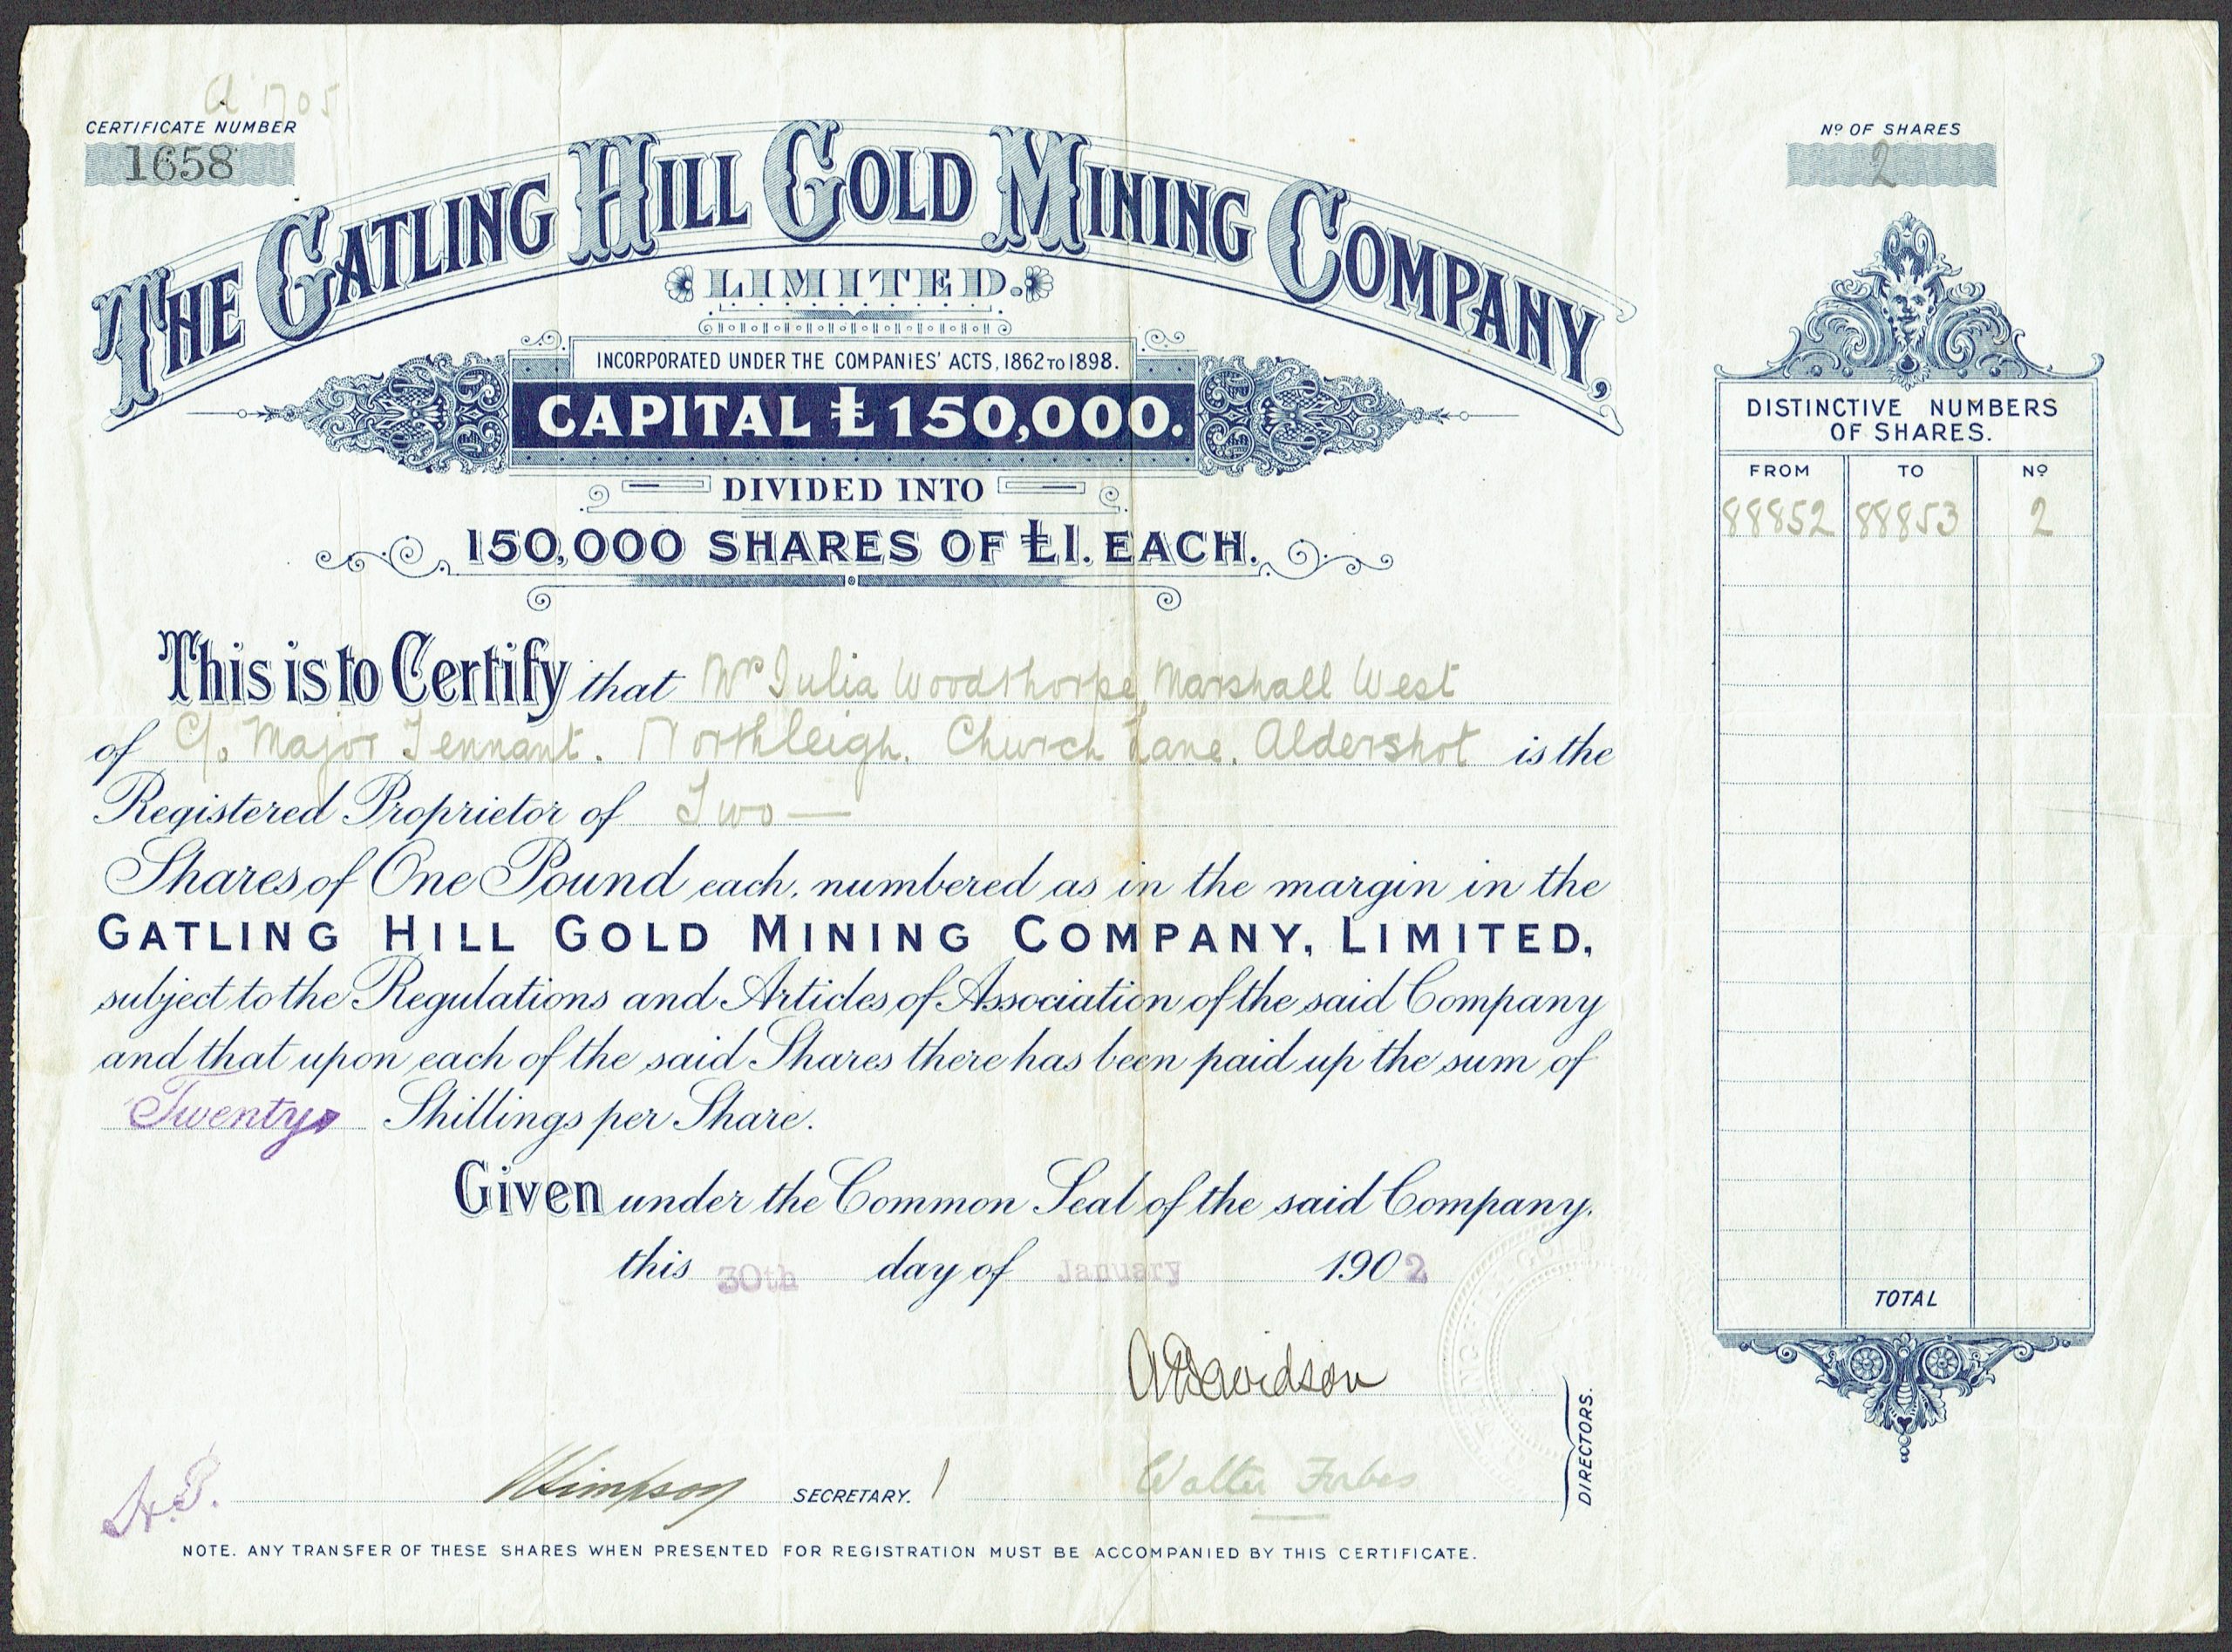 a 1705
CERTIFICATE NUMBER
1658
Nº OF SHARES
2
THE GATLING HILL GOLD MINING COMPANY,
LIMITED.
INCORPORATED UNDER THE COMPANIES' ACTS, 1862 TO 1898.
CAPITAL £150,000.
DIVIDED INTO
150,000 SHARES OF £1. EACH.
This is to Certify that Mrs Julia Woodthorpe Marshall West
of C/o Major Tennant. Northleigh. Church Lane. Aldershot is the
Registered Proprietor of Two —
Shares of One Pound each, numbered as in the margin in the
GATLING HILL GOLD MINING COMPANY, LIMITED,
subject to the Regulations and Articles of Association of the said Company
and that upon each of the said Shares there has been paid up the sum of
Twenty Shillings per Share.
Given under the Common Seal of the said Company.
this 30th day of January 1902
A Davidson
Simpson SECRETARY.
Walter Forbes
DIRECTORS.
NOTE. ANY TRANSFER OF THESE SHARES WHEN PRESENTED FOR REGISTRATION MUST BE ACCOMPANIED BY THIS CERTIFICATE.
DISTINCTIVE NUMBERS
OF SHARES.
FROM TO Nº
88852 88853 2
TOTAL